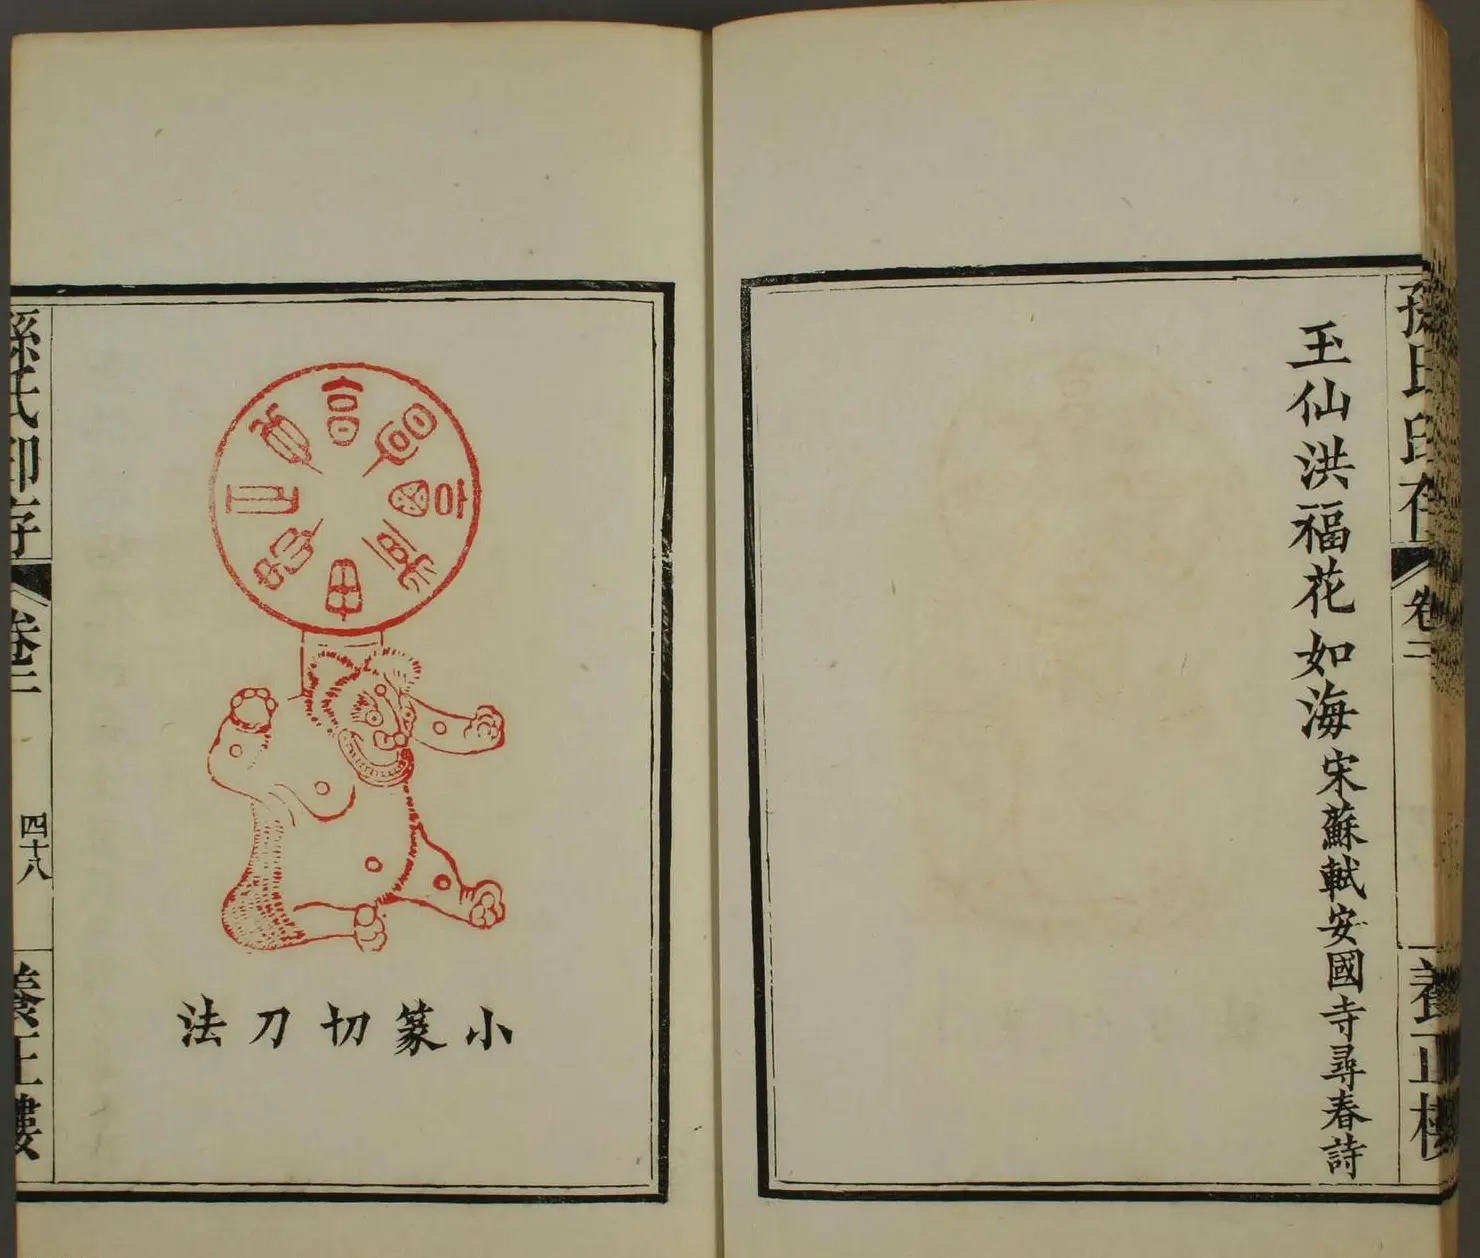 孫氏印存
卷二
養正樓
玉仙洪福花如海宋蘇軾安國寺尋春詩
小篆切刀法
孫氏印存
卷二
四十八
養正樓